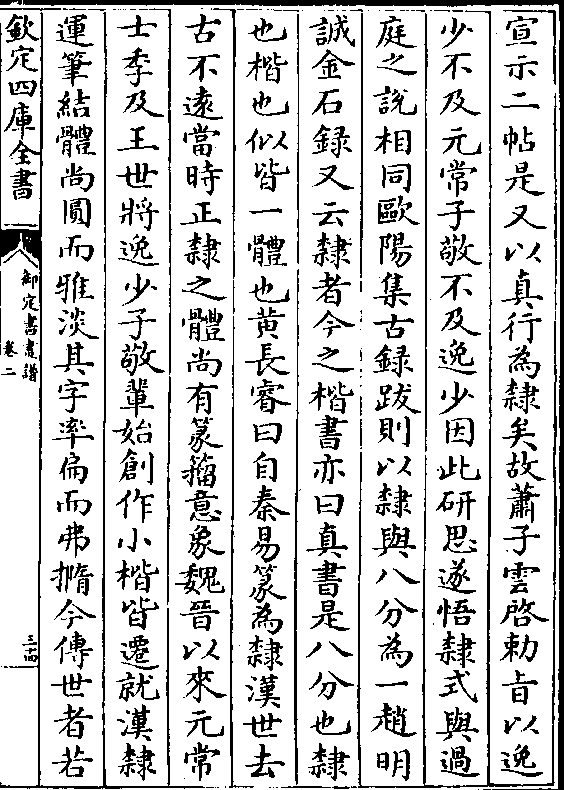 宣示二帖是又以真行為隸矣故蕭子雲啓勅旨以逸
少不及元常子敬不及逸少因此研思遂悟隸式與過
庭之說相同歐陽集古録跋則以隸與八分為一趙明
誠金石録又云隸者今之楷書亦曰真書是八分也隸
也楷也似皆一體也黄長睿曰自秦易篆為隸漢世去
古不遠當時正隸之體尚有篆籀意象魏晉以來元常
士季及王世將逸少子敬輩始創作小楷皆遷就漢隸
運筆結體尚圓而雅淡其字率扁而弗橢今傳世者若
欽定四庫全書
御定書畫譜
卷二
三十四